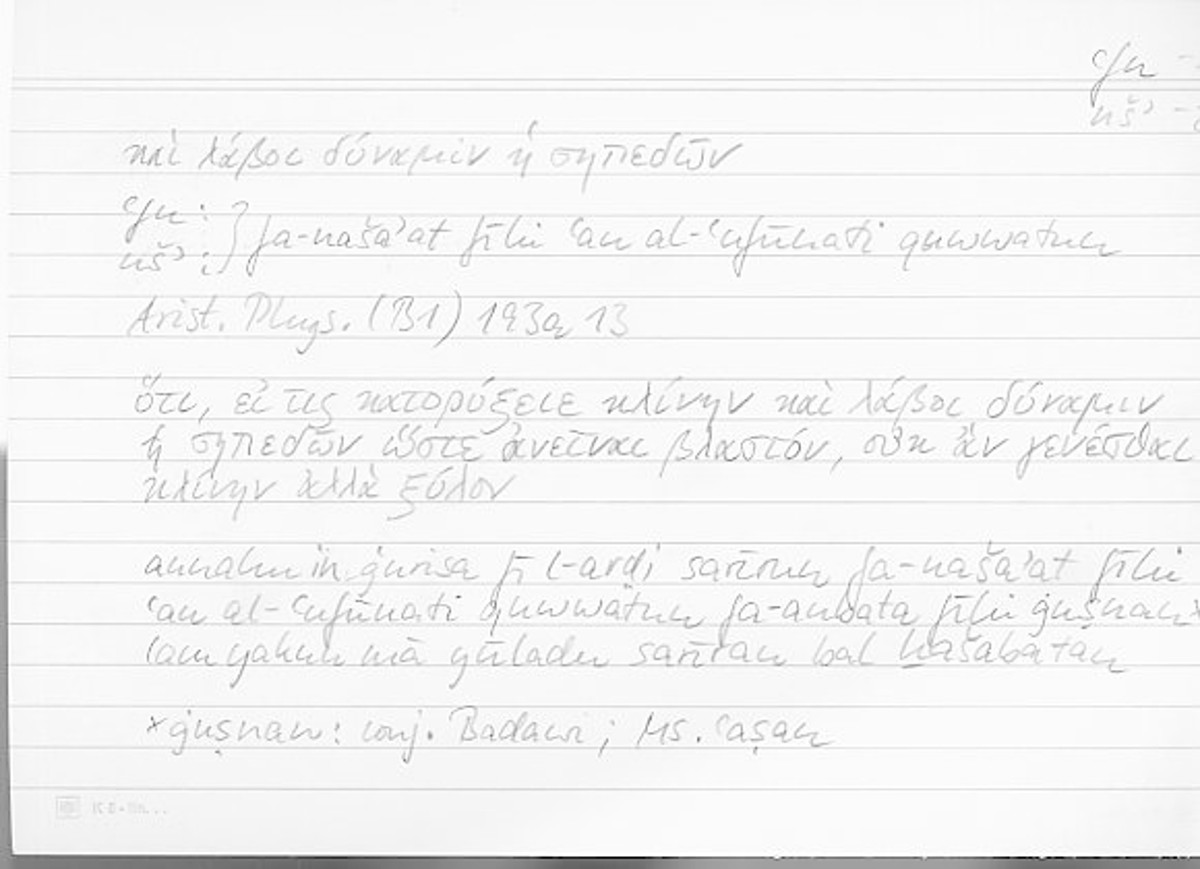 ʿfn
nšʾ
καὶ λάβοι δύναμιν ἡ σηπεδὼν
ʿfn:
nšʾ: } fa-našaʾat fīhi ʿan al-ʿufūnati quwwatun
Arist. Phys. (B1) 193a 13
ὅτι, εἴ τις κατορύξειε κλίνην καὶ λάβοι δύναμιν
ἡ σηπεδὼν ὥστε ἀνεῖναι βλαστόν, οὐκ ἂν γενέσθαι
κλίνην ἀλλὰ ξύλον
annahu in ġurisa fī l-arḍi sarīrun fa-našaʾat fīhi
ʿan al-ʿufūnati quwwatun fa-anbata fīhi ġuṣnanˣ
lam yakun mā yūladu sarīran bal ḫašabatan
ˣ ġuṣnan: conj. Badawi; Ms. ʿaṣan